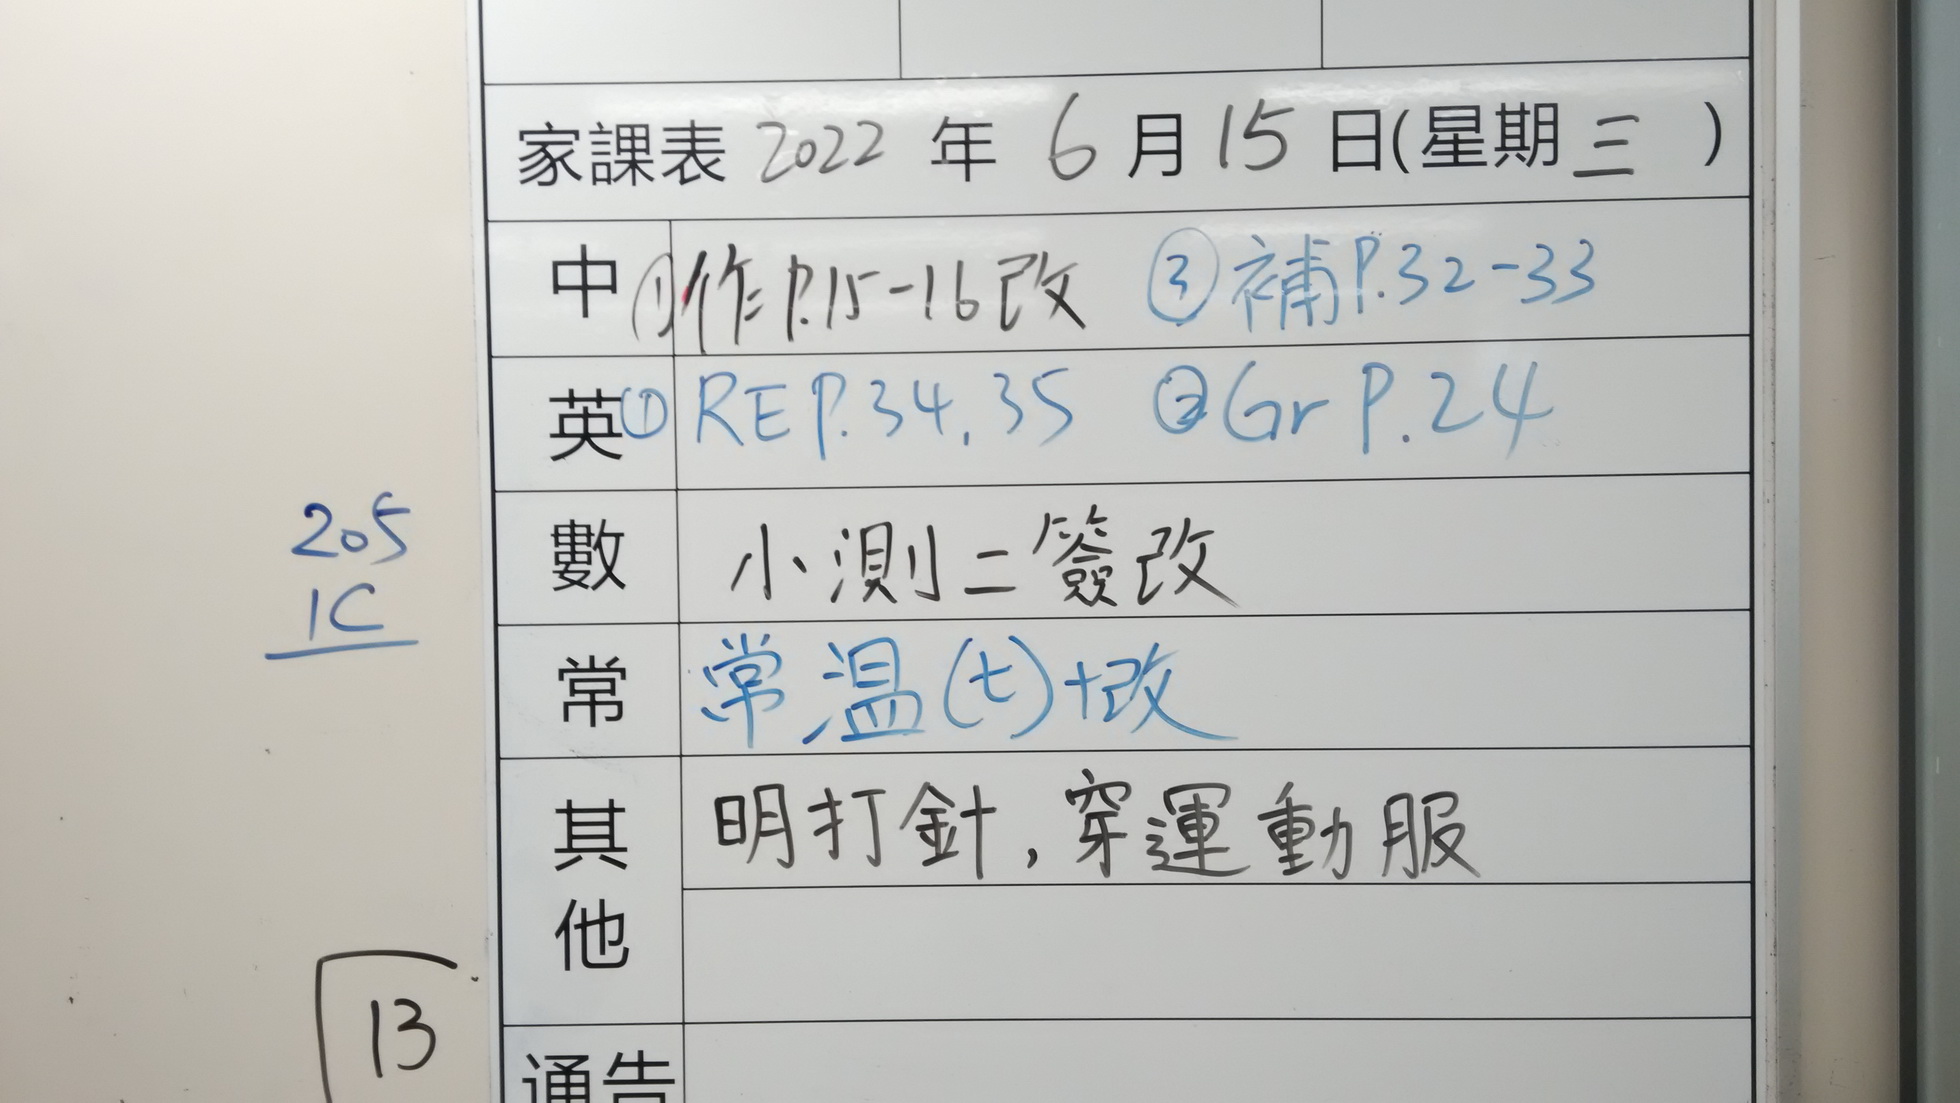 家課表 2022 年 6 月 15 日(星期三 )
中 ①作P.15-16改 ③補P.32-33
英 ①REP.34,35 ②Gr P.24
數 小測二簽改
205
1C
常 常溫(七)+改
其他 明打針,穿運動服
13
通告